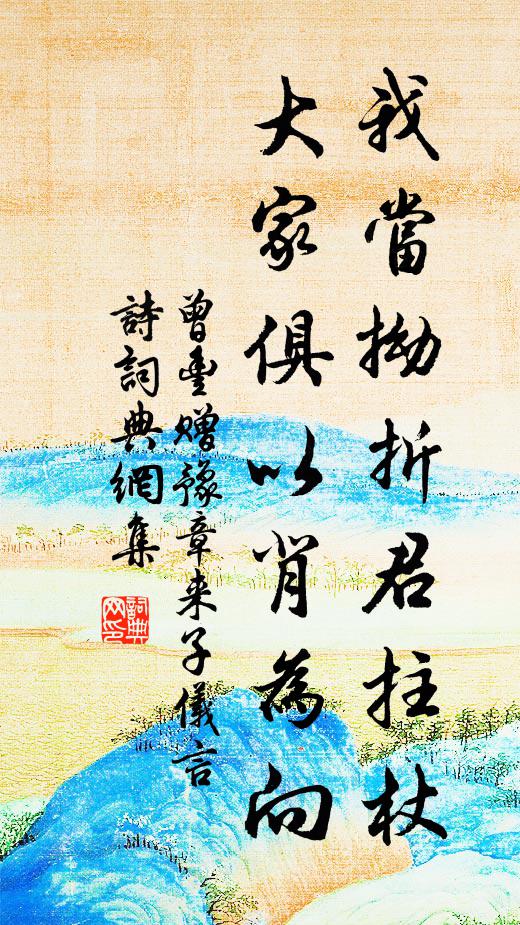 我當拗折君拄杖
大家俱以背為向
曾豐贈豫章来子儀言
詩詞典網集
詞典网印